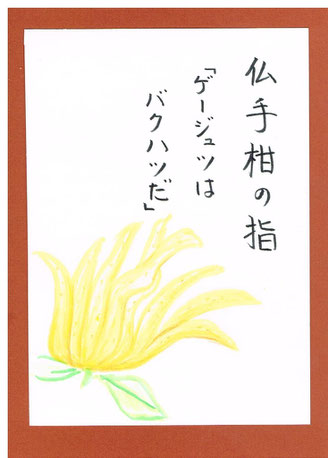 仏手柑の指
「ゲージュツは
バクハツだ」